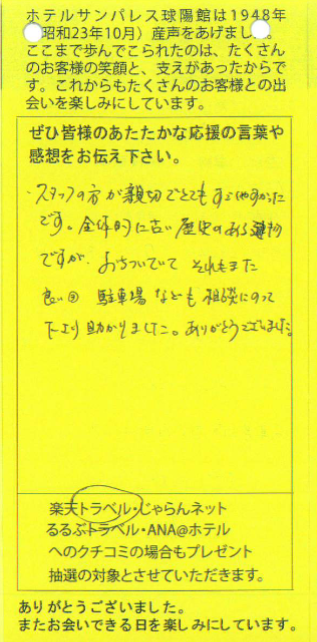 ホテルサンパレス球陽館は1948年
昭和23年10月）産声をあげまし
ここまで歩んでこられたのは、たくさん
のお客様の笑顔と、支えがあったからで
す。これからもたくさんのお客様との出
会いを楽しみにしています。
ぜひ皆様のあたたかな応援の言葉や
感想をお伝え下さい。
・スタッフの方が親切でとてもすごしやすかった
です。全体的に古い歴史のある建物
ですが、おちついていて それもまた
良い 駐車場なども相談にのって
下より助かりました。ありがとうございました。
楽天トラベル・じゃらんネット
るるぶトラベル・ANA@ホテル
へのクチコミの場合もプレゼント
抽選の対象とさせていただきます。
ありがとうございました。
またお会いできる日を楽しみにしています。